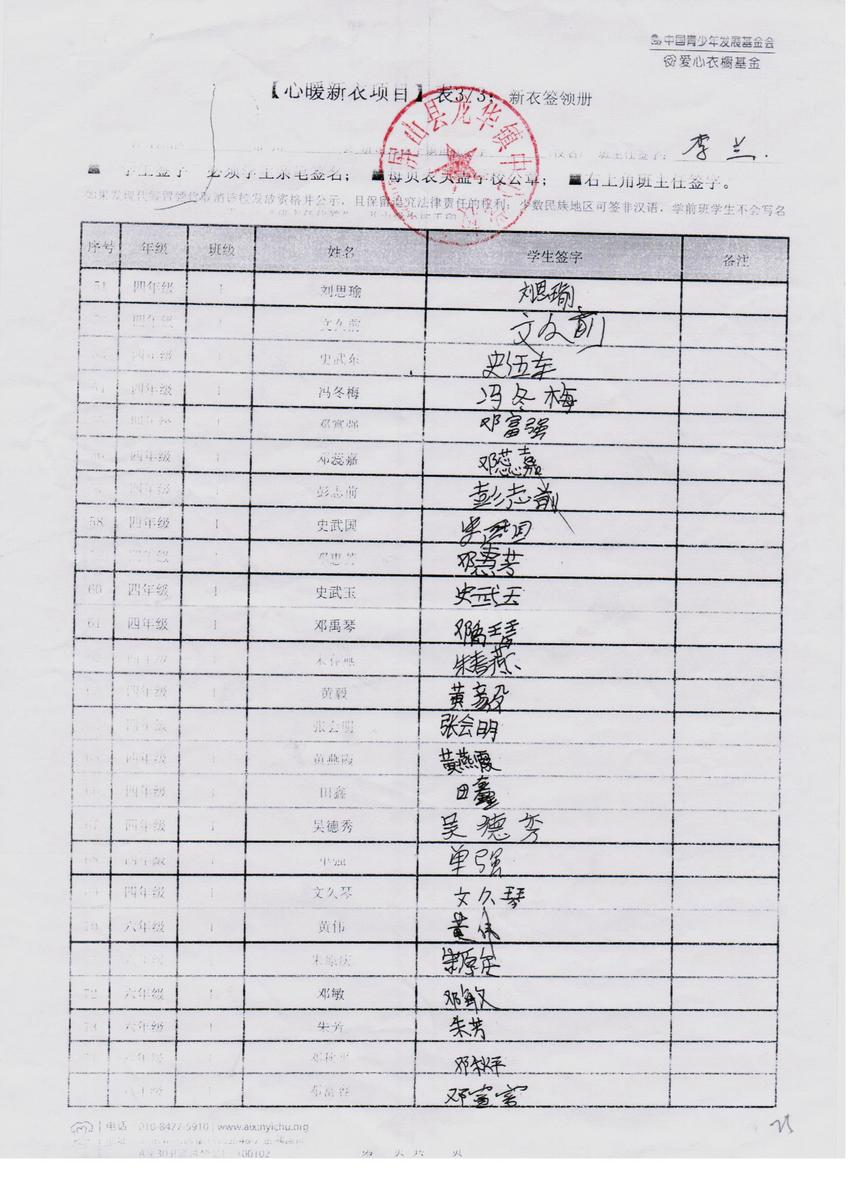 中国青少年发展基金会
爱心衣橱基金
【心暖新衣项目】表3/3：新衣签领册
屏山县龙华镇中心
李兰.
■ 学生签字 必须学生亲笔签名； ■每页表头盖学校公章； ■右上角班主任签字。
且保留追究法律责任的权利；少数民族地区可签非汉语，学前班学生不会写名
序号 年级 班级 姓名 学生签字 备注
51 四年级 1 刘思瑜 刘思瑜
四年级 1 文久前 文久前
四年级 1 史武东 史伍东
四年级 1 冯冬梅 冯冬梅
四年级 1 邓富强 邓富强
四年级 1 邓蕊嘉 邓蕊嘉
四年级 1 彭志前 彭志前
58 四年级 1 史武国
四年级 1 邓惠芳 邓惠芳
60 四年级 1 史武玉 史武玉
61 四年级 1 邓禹琴 邓禹琴
四年级 1 朱春燕
四年级 1 黄毅 黄毅
四年级 张会明 张会明
四年级 1 黄燕霞 黄燕霞
四年级 1 田鑫 田鑫
67 四年级 1 吴德秀 吴德秀
68 四年级 1 单强 单强
四年级 1 文久琴 文久琴
70 六年级 1 黄伟 黄伟
朱原庆
72 六年级 1 邓敏 邓敏
73 六年级 1 朱芳 朱芳
六年级 1 邓秋平 邓秋平
六年级 邓富容
电话 010-8427-5910 | www.aixinyichu.org
100102